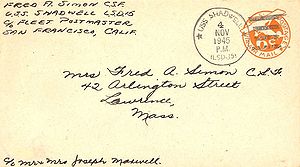 FRED A. SIMON CSF
U.S.S. SHADWELL LSD15
C/O FLEET POSTMASTER
SAN FRANCISCO, CALIF.
USS SHADWELL
4
NOV
1945
P.M.
(LSD-15)
Mrs Fred A. Simon C.S.F.
42 Arlington Street
Lawrence,
Mass.
C/o Mr & Mrs Joseph Maxwell.